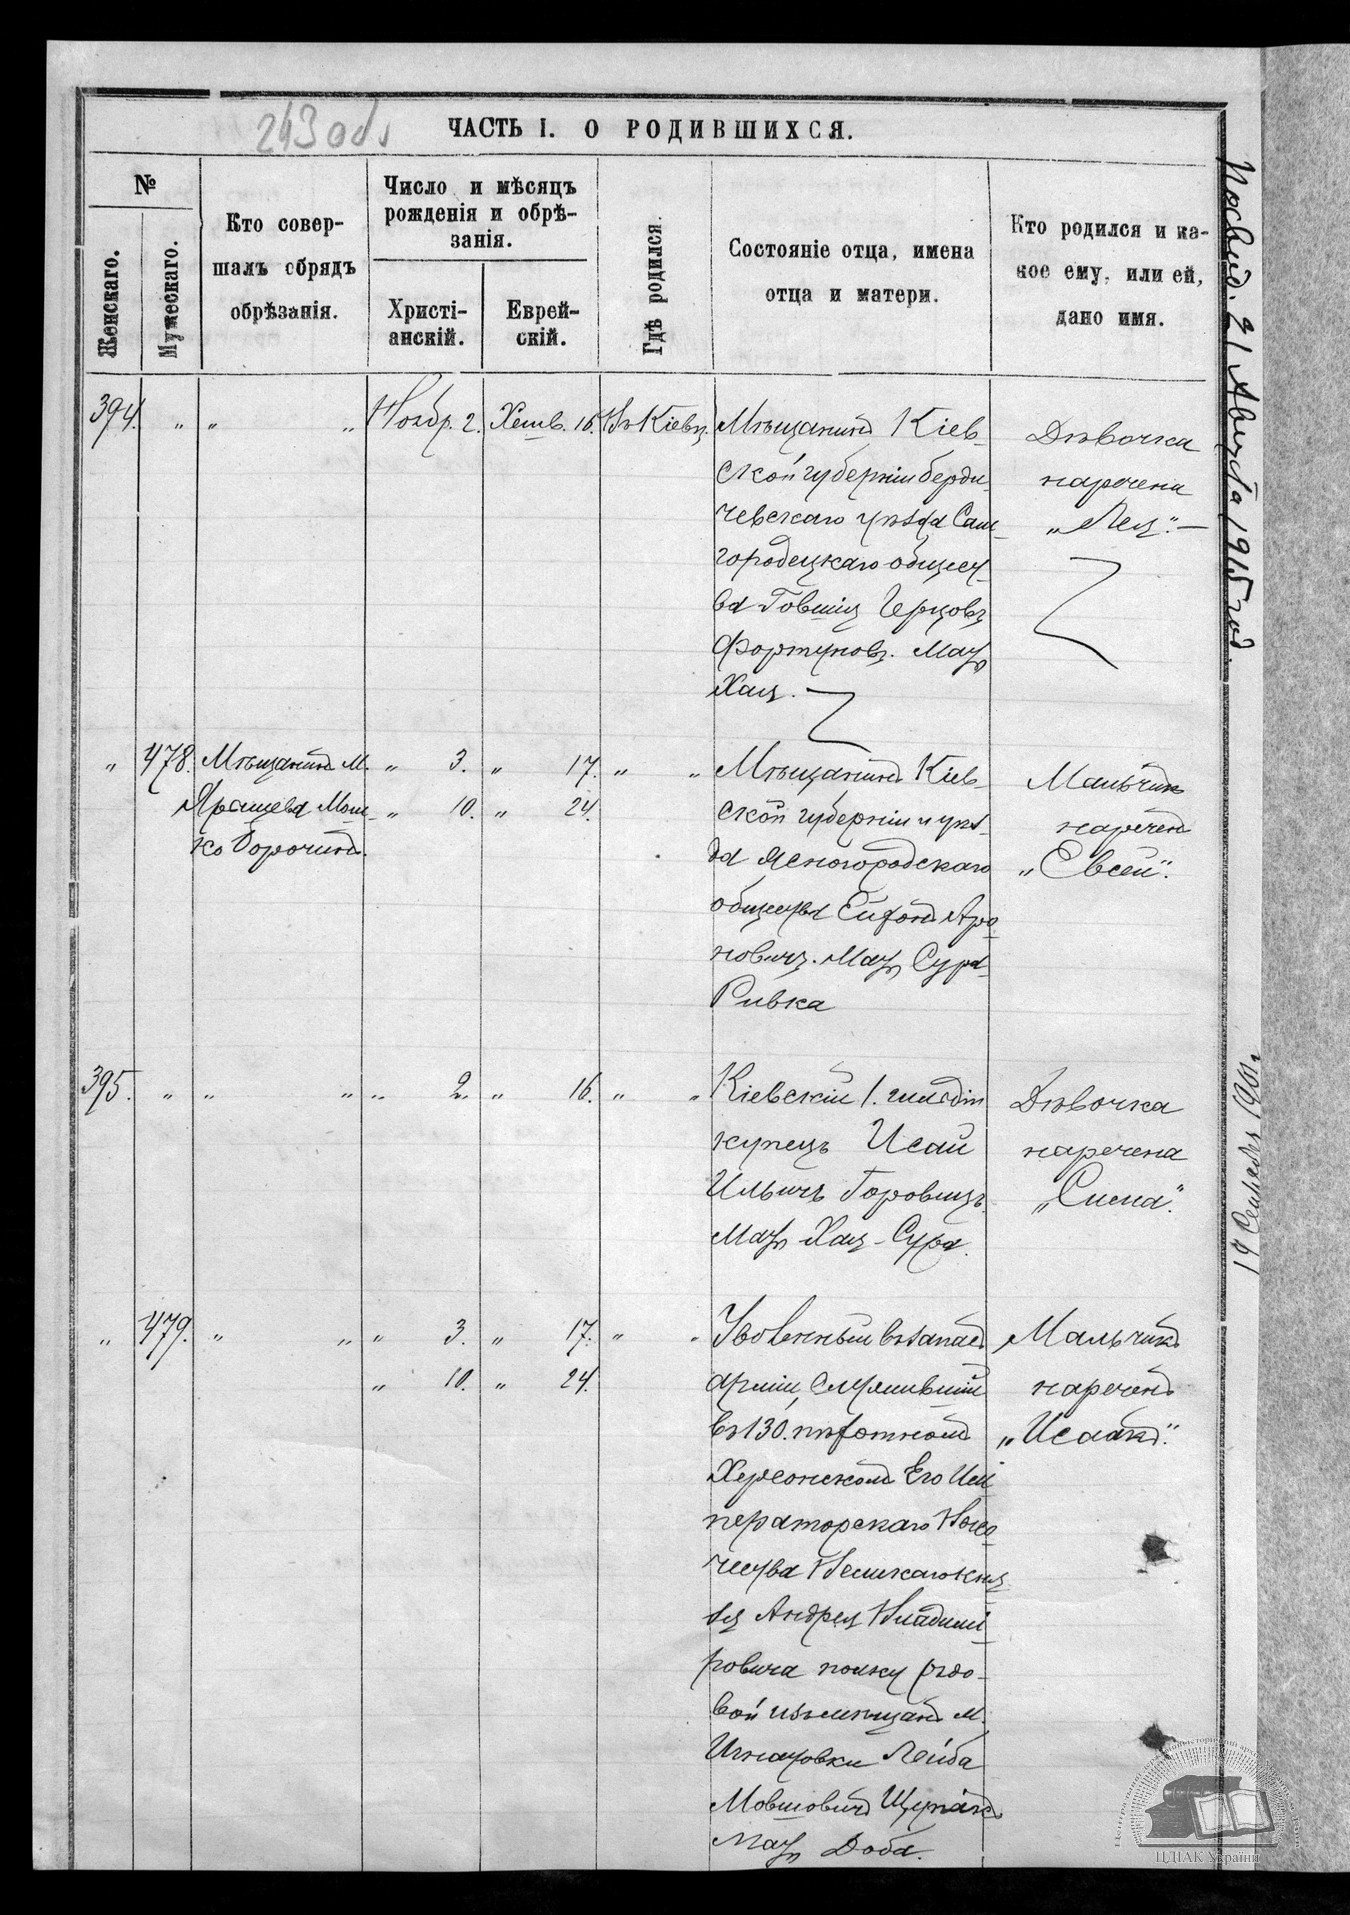 243 об.
ЧАСТЬ I. О РОДИВШИХСЯ.
№
Женскаго.
Мужескаго.
Кто совер-
шалъ обрядъ
обрѣзанія.
Число и мѣсяцъ
рожденія и обрѣ-
занія.
Христі-
анскій.
Еврей-
скій.
Гдѣ родился.
Состояніе отца, имена
отца и матери.
Кто родился и ка-
кое ему, или ей,
дано имя.
394. " " " Ноябр. 2. Хешв. 16. Въ Кіевѣ.
Мѣщанинъ Кіев-
ской губерніи Берди-
чевскаго уѣзда Сам-
городецкаго общест-
ва Герцовъ
Фортуновъ. Мать
Хая.
Дѣвочка
наречена
„Лея".—
" 478. Мѣщанинъ м. " 3. " 17. " "
Мош- " 10. " 24.
ко Борочинъ.
Мѣщанинъ Кіев-
ской губерніи и уѣз-
да Ясногородскаго
общества Аро-
новичъ. Мать Сура-
Ривка
Мальчикъ
нареченъ
„Евсей".
395. " " " " 2. " 16. " "
Кіевскій 1. гильдіи
купецъ Исай
Ильичъ Горовицъ.
Мать Хая-Сура.
Дѣвочка
наречена
" 479. " " " 3. " 17. " "
" 10. " 24.
Уволенный въ запасъ
арміи, служившій
въ 130. пѣхотномъ
Херсонскомъ Его Им-
ператорскаго Высо-
чества Великаго Кня-
зя Андрея Владимі-
ровича полку рядо-
вой изъ мѣщанъ м.
Игнатовки Лейба
Мовшовичъ Щупакъ
Мать Доба.
Мальчикъ
нареченъ
„Исаакъ".
21 Августа 1915 год.
19 Сентября 1901 г
ЦДІАК України